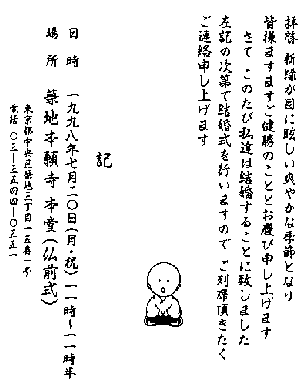 拝啓 新緑が目に眩しい爽やかな季節となり
皆様ますますご健勝のこととお慶び申し上げます
さて このたび私達は結婚することに致しました
左記の次第で結婚式を行いますので ご列席頂きたく
ご連絡申し上げます
記
日時 一九九八年七月二〇日(月・祝)一一時〜一一時半
場所 築地本願寺 本堂(仏前式)
東京都中央区築地三丁目一五番一号
電話 〇三―三五四四―〇五五一